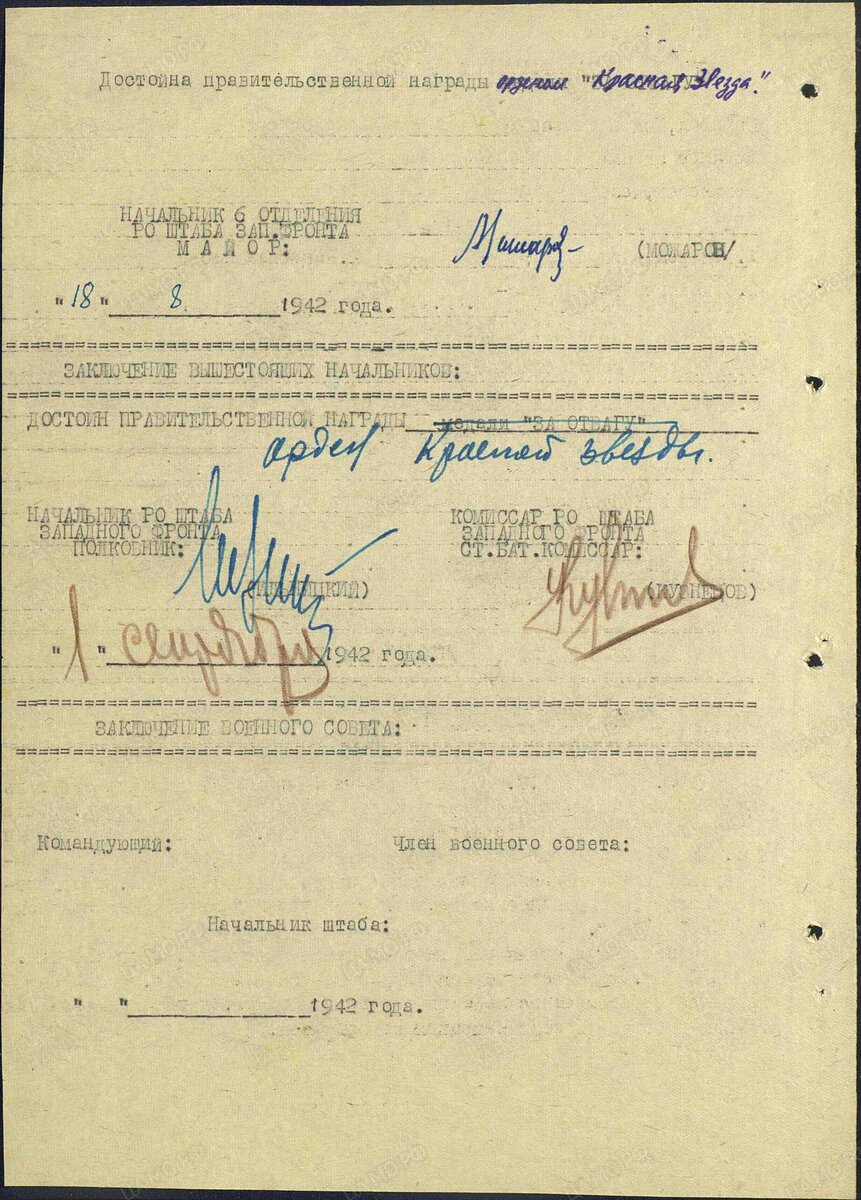 Достойна правительственной награды орденом "Красная Звезда".
НАЧАЛЬНИК 6 ОТДЕЛЕНИЯ
РО ШТАБА ЗАП.ФРОНТА
МАЙОР:
(МОЖАРОВ/
"18" 8 1942 года.
ЗАКЛЮЧЕНИЕ ВЫШЕСТОЯЩИХ НАЧАЛЬНИКОВ:
ДОСТОИН ПРАВИТЕЛЬСТВЕННОЙ НАГРАДЫ медали "ЗА ОТВАГУ"
орден Красной звезды.
НАЧАЛЬНИК РО ШТАБА
ЗАПАДНОГО ФРОНТА
ПОЛКОВНИК:
(ИЛЬНИЦКИЙ)
КОМИССАР РО ШТАБА
ЗАПАДНОГО ФРОНТА
СТ.БАТ.КОМИССАР:
(КУЗНЕЦОВ)
"1" сентября 1942 года.
ЗАКЛЮЧЕНИЕ ВОЕННОГО СОВЕТА:
Командующий: Член военного совета:
Начальник штаба:
" " 1942 года.